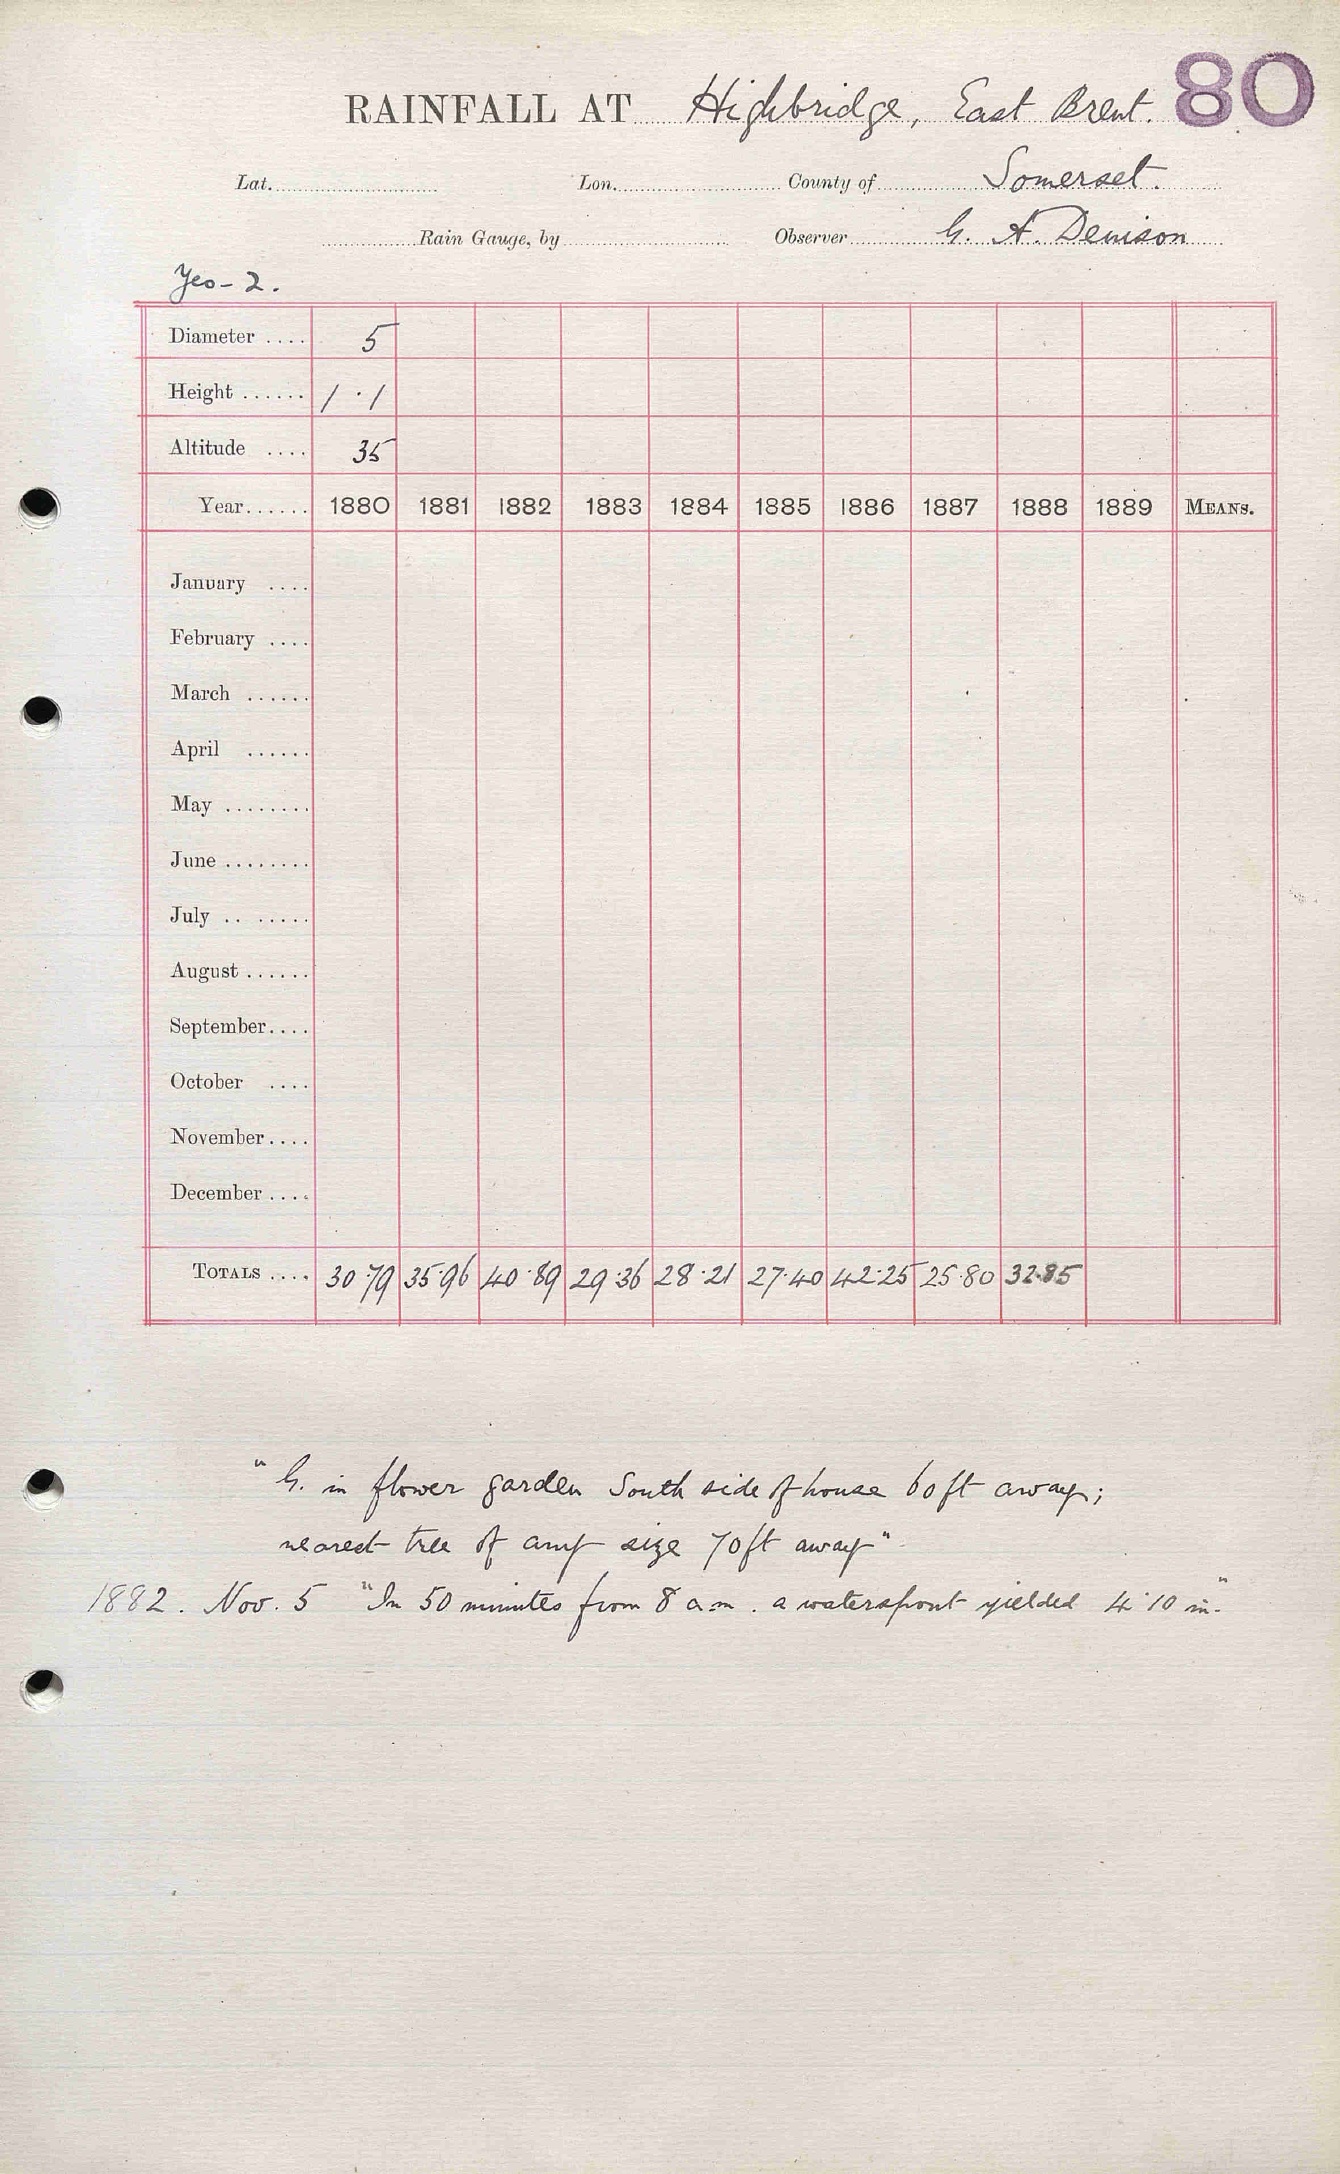 RAINFALL AT Highbridge, East Brent. 80
Lat. Lon. County of Somerset.
Rain Gauge, by Observer G. A. Denison
Yeo-2.
Diameter .... 5
Height ...... 1 · 1
Altitude .... 35
Year...... 1880 1881 1882 1883 1884 1885 1886 1887 1888 1889 MEANS.
January ....
February ....
March ......
April ......
May ........
June ........
July .. ......
August ......
September....
October ....
November....
December ....
TOTALS .... 30·79 35·96 40·89 29·36 28·21 27·40 42·25 25·80 32·85
"G. in flower garden South side of house 60ft away;
nearest tree of any size 70ft away"
1882. Nov. 5 "In 50 minutes from 8 a.m. a waterspout yielded 4·10 in."